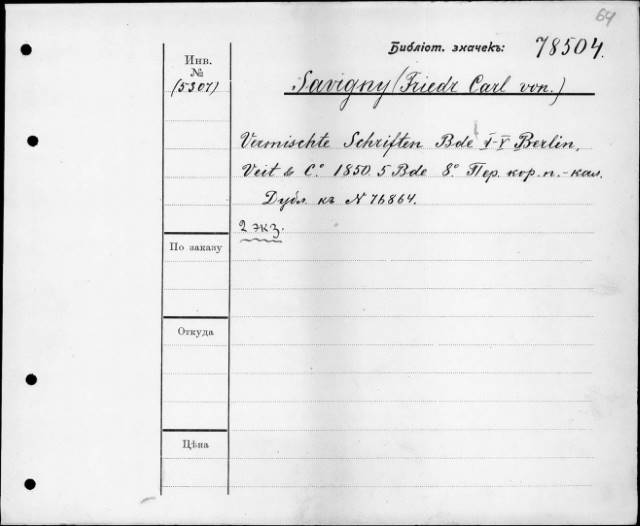 64
Библіот. значекъ: 78504.
Инв.
№
(5307)
Savigny (Friedr Carl von.)
Vermischte Schriften Bde I-V Berlin,
Veit & C° 1850. 5 Bde 8° Пер. кор. п.-кал.
Дубл. къ N 76864.
2 экз.
По заказу
Откуда
Цѣна